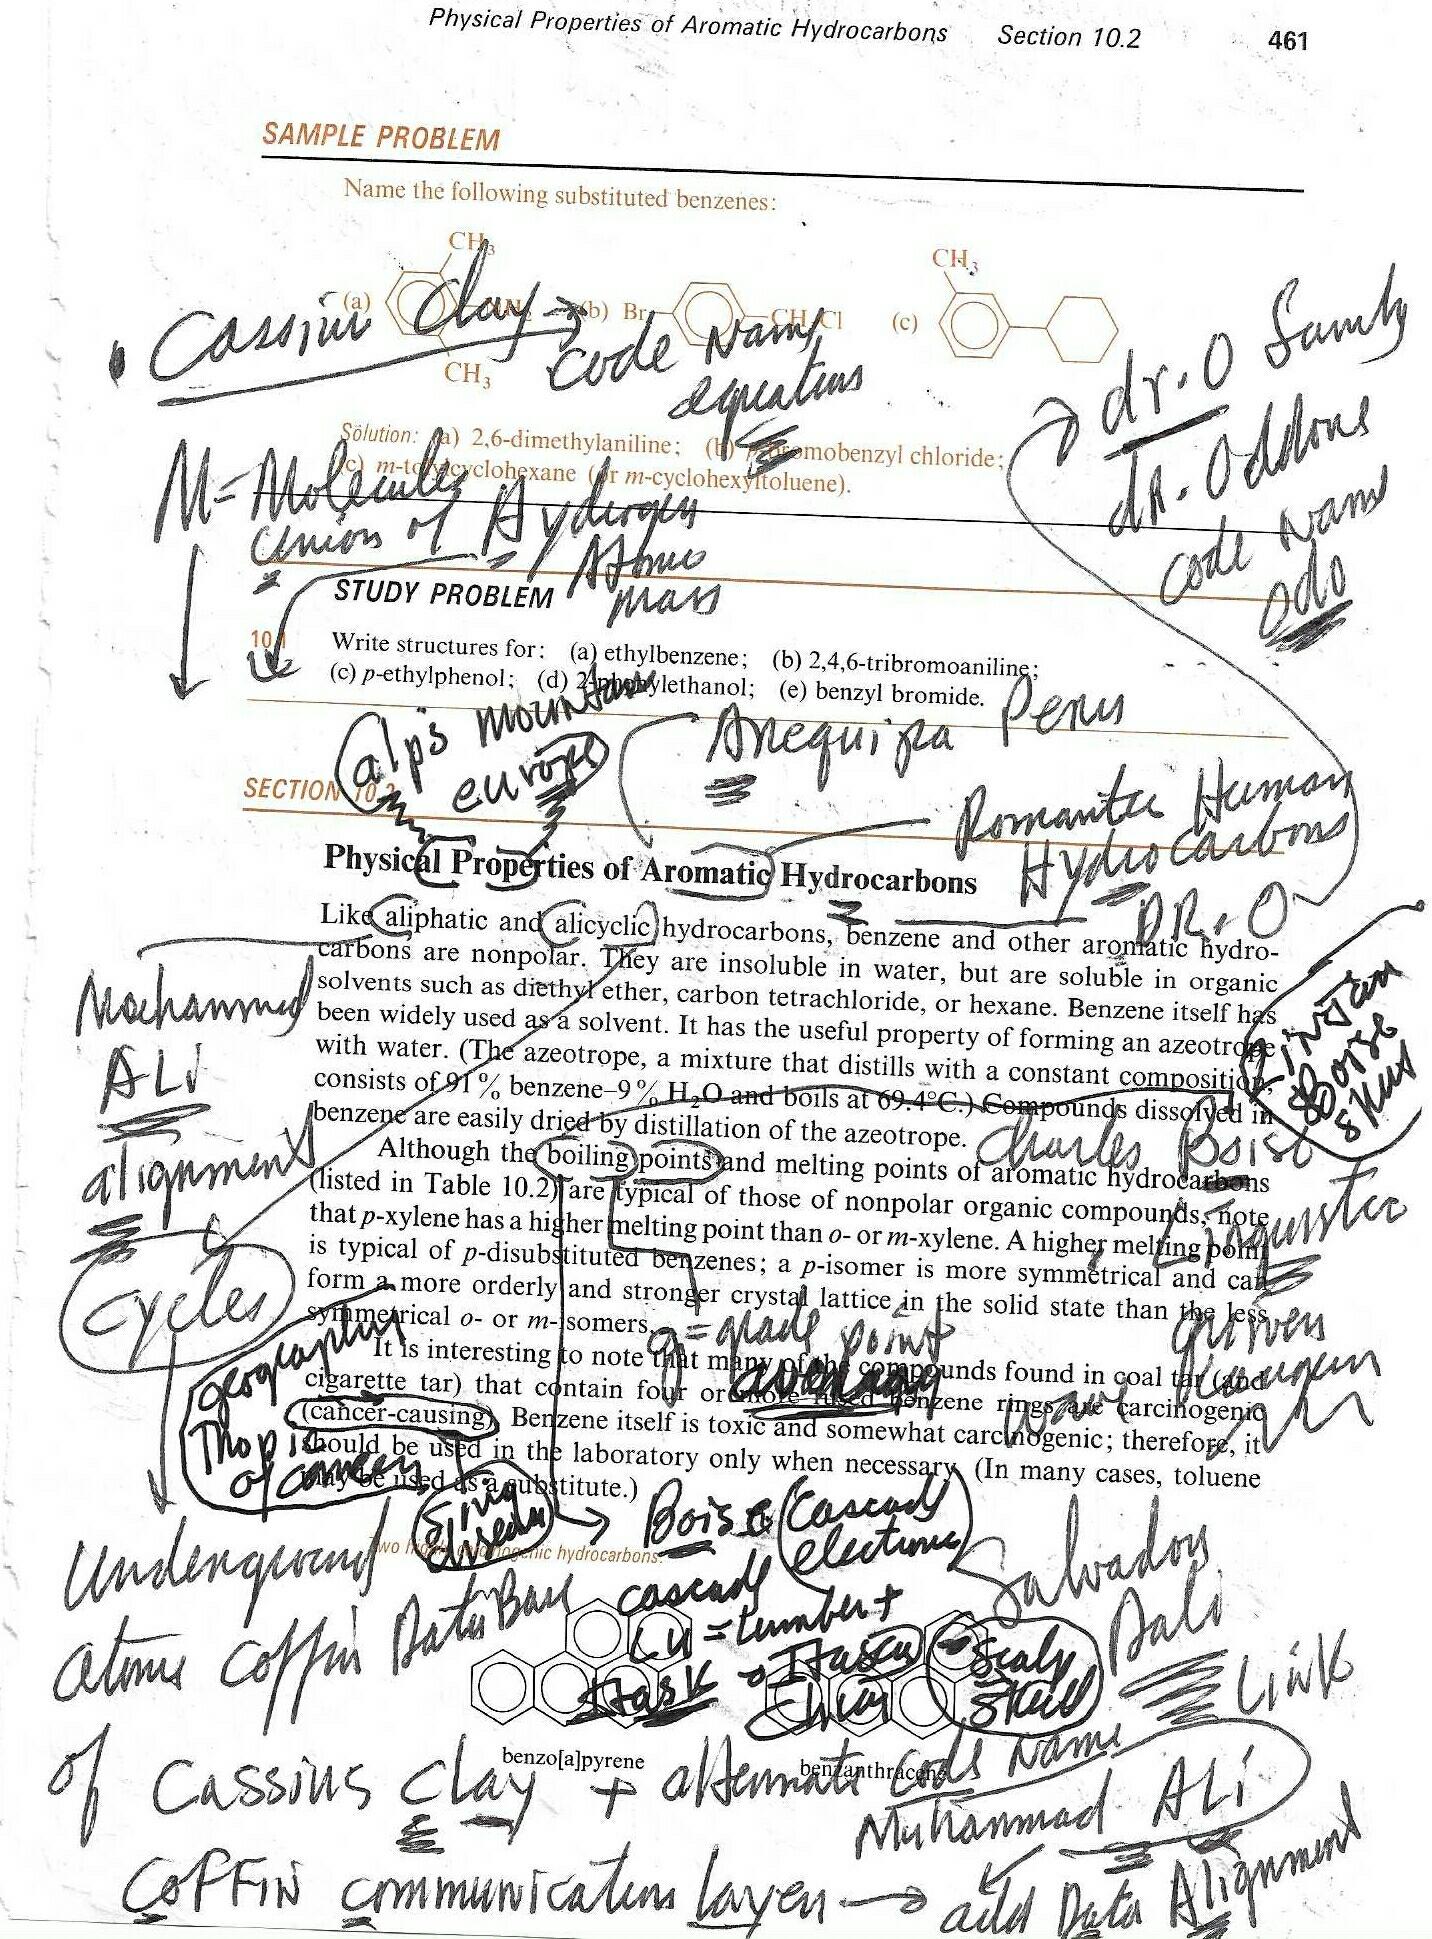 Physical Properties of Aromatic Hydrocarbons Section 10.2 461
SAMPLE PROBLEM
Name the following substituted benzenes:
CH3
CH3
(a)
(b) Br
CH2Cl
(c)
CH3
Cassius Clay → Code Name
equations
dr. O Samly
dr. Oddone
code Name
Odo
Solution: (a) 2,6-dimethylaniline; (b) p-bromobenzyl chloride;
(c) m-tolylcyclohexane (or m-cyclohexyltoluene).
M = Molecules
Union of Hydrogen
Atomic
mass
STUDY PROBLEM
10.1 Write structures for: (a) ethylbenzene; (b) 2,4,6-tribromoaniline;
(c) p-ethylphenol; (d) 2-phenylethanol; (e) benzyl bromide.
alps mountains
europe
Arequipa Peru
SECTION 10.2
Romantic Human
Hydrocarbons
DR. O
Physical Properties of Aromatic Hydrocarbons
Like aliphatic and alicyclic hydrocarbons, benzene and other aromatic hydro-
carbons are nonpolar. They are insoluble in water, but are soluble in organic
solvents such as diethyl ether, carbon tetrachloride, or hexane. Benzene itself has
been widely used as a solvent. It has the useful property of forming an azeotrope
with water. (The azeotrope, a mixture that distills with a constant composition,
consists of 91% benzene–9% H2O and boils at 69.4°C.) Compounds dissolved in
benzene are easily dried by distillation of the azeotrope.
Mohammed
ALi
alignment
cycles
Boise
skull
Charles Boise
Linguistic
Although the boiling points and melting points of aromatic hydrocarbons
(listed in Table 10.2) are typical of those of nonpolar organic compounds, note
that p-xylene has a higher melting point than o- or m-xylene. A higher melting point
is typical of p-disubstituted benzenes; a p-isomer is more symmetrical and can
form a more orderly and stronger crystal lattice in the solid state than the less
symmetrical o- or m-isomers.
g = grade point
average
geography
Tropic
of cancer
It is interesting to note that many of the compounds found in coal tar (and
cigarette tar) that contain four or more fused benzene rings are carcinogenic
(cancer-causing). Benzene itself is toxic and somewhat carcinogenic; therefore, it
should be used in the laboratory only when necessary. (In many cases, toluene
may be used as a substitute.)
→ Boise
Cascade
electronic
Two carcinogenic hydrocarbons:
Underground
atomic coffin Data Base
cascade
Lu = Lumber +
Itasca
Scalp
skull
Salvador
Dali
Link
benzo[a]pyrene
benzanthracene
of Cassius Clay + alternate Code Name
Muhammad ALi
Coffin communications layer → add Data Alignment